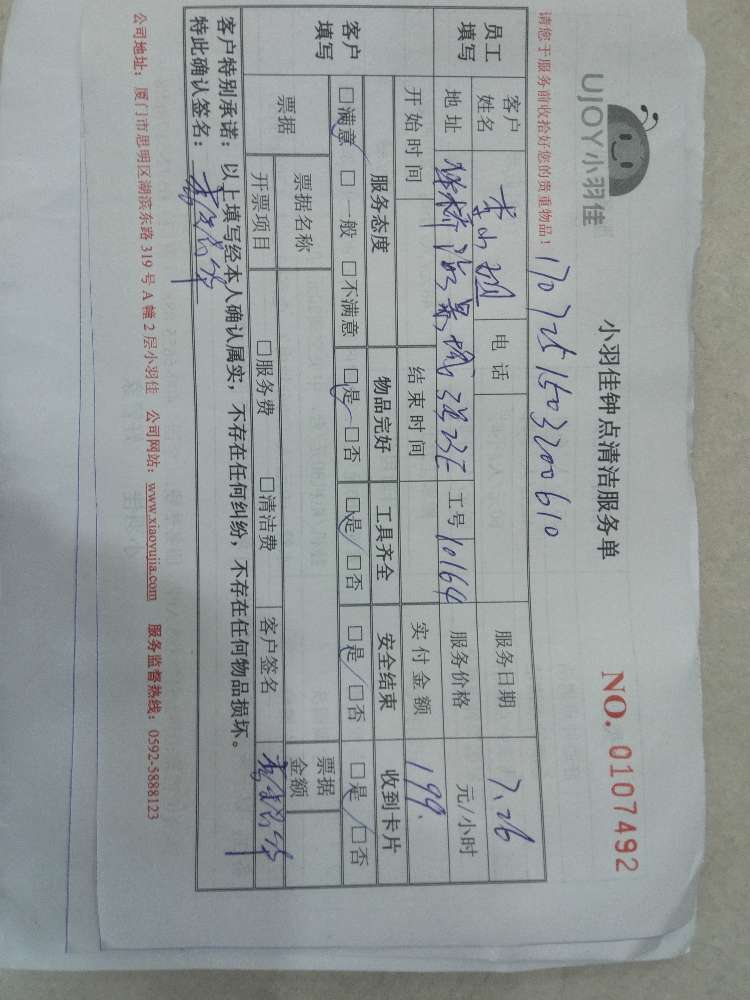 UJOY小羽佳
小羽佳钟点清洁服务单
NO. 0107492
请您于服务前收拾好您的贵重物品！
1707251503200610
员工填写 客户姓名 电话 服务日期 7.26
地址 工号 10164 服务价格 元/小时
开始时间 结束时间 实付金额 199.
客户填写 服务态度 物品完好 工具齐全 安全结束 收到卡片
□满意 □一般 □不满意 □是 □否 □是 □否 □是 □否 □是 □否
票据 票据名称 票据金额
开票项目 □服务费 □清洁费 客户签名
客户特别承诺：以上填写经本人确认属实，不存在任何纠纷，不存在任何物品损坏。
特此确认签名：
公司地址：厦门市思明区湖滨东路 319 号 A 幢 2 层小羽佳 公司网站：www.xiaoyujia.com 服务监督热线：0592-5888123